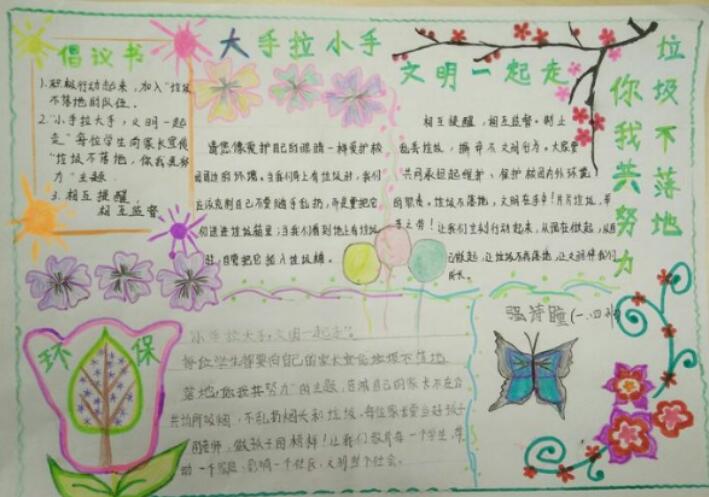 倡议书
1.积极行动起来，加入"垃圾
不落地的队伍。
2."小手拉大手，文明一起
走"每位学生向家长宣传
"垃圾不落地，你我共努
力"主题
3.相互提醒，
相互监督
大手拉小手
文明一起走
请您像爱护自己的眼睛一样爱护校
园周边的环境。当我们身上有垃圾时，我们
应该克制自己不要随手乱扔，而是要把它
扔进垃圾箱里；当我们看到地上有垃圾
时，自觉把它捡入垃圾桶。
相互提醒，相互监督。制止
乱丢垃圾，摒弃不文明行为。大家
共同承担起维护、保护校园内外环境
的职责。垃圾不落地，文明在手中！片片垃圾，举
手之劳！让我们立刻行动起来，从现在做起，从自
己做起，让垃圾不再落地，让文明伴我们
成长。
垃圾不落地
你我共努力
环保
小手拉大手，文明一起走"。
每位学生都要向自己的家长宣传垃圾不落地
落地，你我共努力"的主题，告诫自己的家长不在公
共场所吸烟，不乱扔烟头和垃圾，每位家长要当好孩子
的老师，做孩子的榜样！让我们教育每一个学生，带
动一个家庭，影响一个社区，文明整个社会。